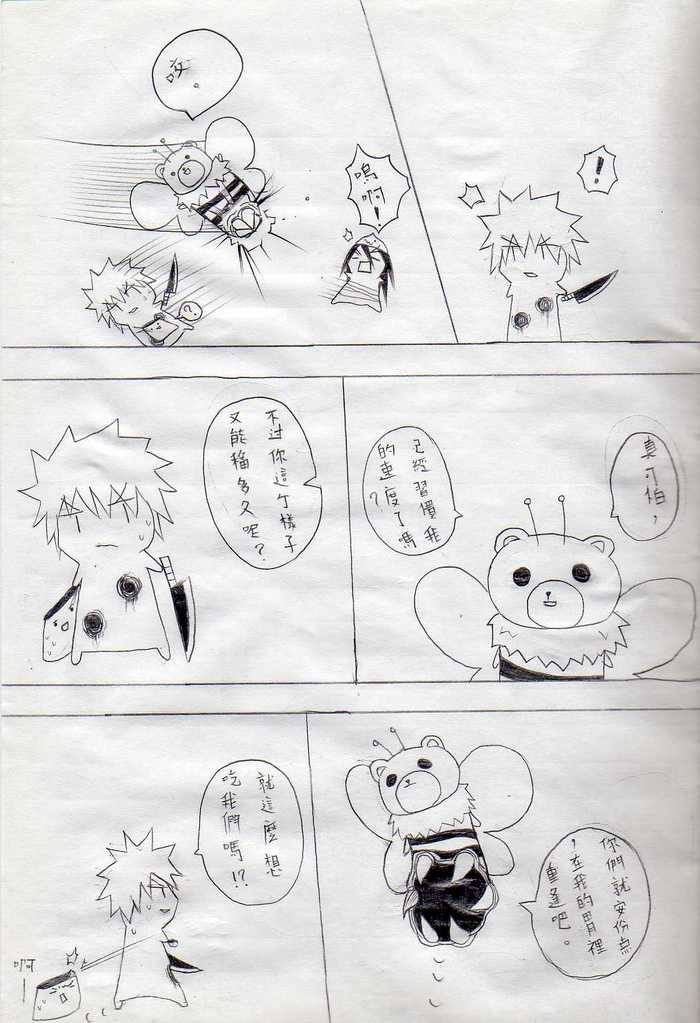 !
嗚
啊!
咬。
?
真可怕，
已經習慣我
的速度了嗎?
不过你這个樣子
又能稱多久呢?
你們就安份點
，在我的胃裡
重逢吧。
就這麼想
吃我們嗎!?
啊—